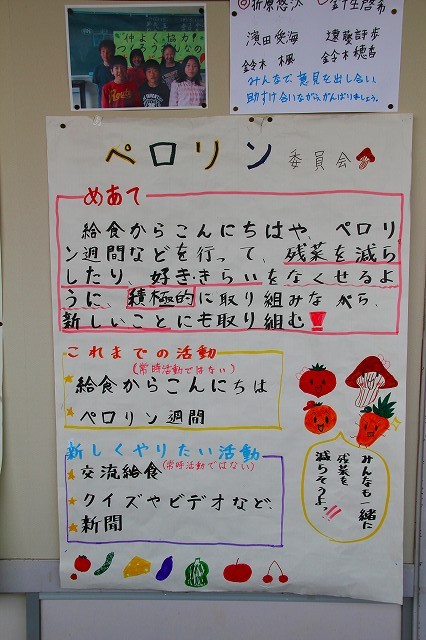 仲よく協力
濱田愛海
鈴木楓
みんなで、意見を出し合い、
助け合いながらがんばりましょう。
ペロリン委員会
めあて
給食からこんにちはや、ペロリ
ン週間などを行って、残菜を減ら
したり、好ききらいをなくせるよ
うに、積極的に取り組みながら、
新しいことにも取り組む!
これまでの活動
(常時活動ではない)
給食からこんにちは
ペロリン週間
新しくやりたい活動
(常時活動ではない)
交流給食
クイズやビデオなど、
新聞
みんなも一緒に
残菜を
減らそうよっ!!